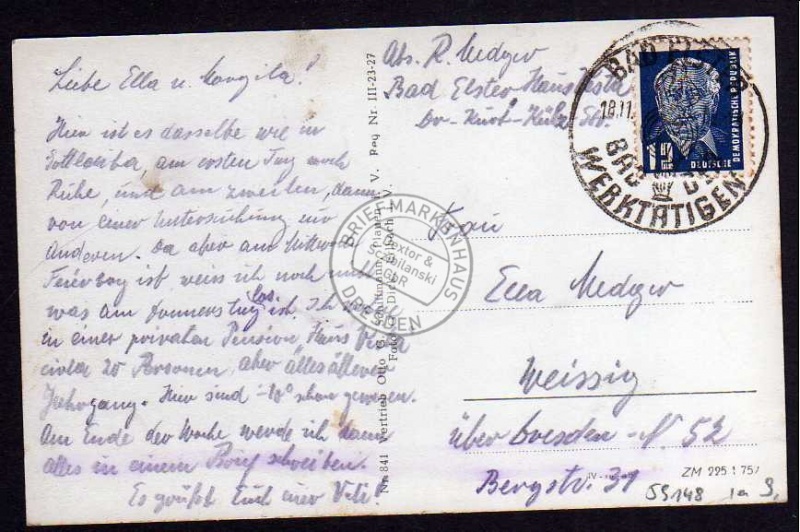 Liebe Ella u. Margita!
Hier ist es dasselbe wie in
Gottleuba, am ersten Tag noch
Ruhe, und am zweiten, dann
von einer Untersuchung zur
anderen. Da aber am Mittwoch
Feiertag ist, weiss ich noch nicht
was am Donnerstag los ist. Ich
in einer privaten Pension, Haus Vesta
circa 20 Personen, aber alles älteren
Jahrgang. Hier sind -10° schon gewesen.
Am Ende der Woche werde ich dann
alles in einem Brief schreiben.
Es grüßt Euch euer Vati!
Nr. 841 Vertrieb Otto Plauen i. V. Reg Nr. III-23-27
Abs. R. Medger
Bad Elster Haus Vesta
Dr-Kurt-Külz-Str.
BAD ELSTER
18.11.
BAD DER
WERKTÄTIGEN
12
DEUTSCHE
DEMOKRATISCHE REPUBLIK
BRIEFMARKENHAUS
Textor &
Schibilanski
GbR
DRESDEN
Frau
Ella Medger
Weissig
über Dresden-N. 52
Bergstr. 31
ZM 225 1 75/
SS148